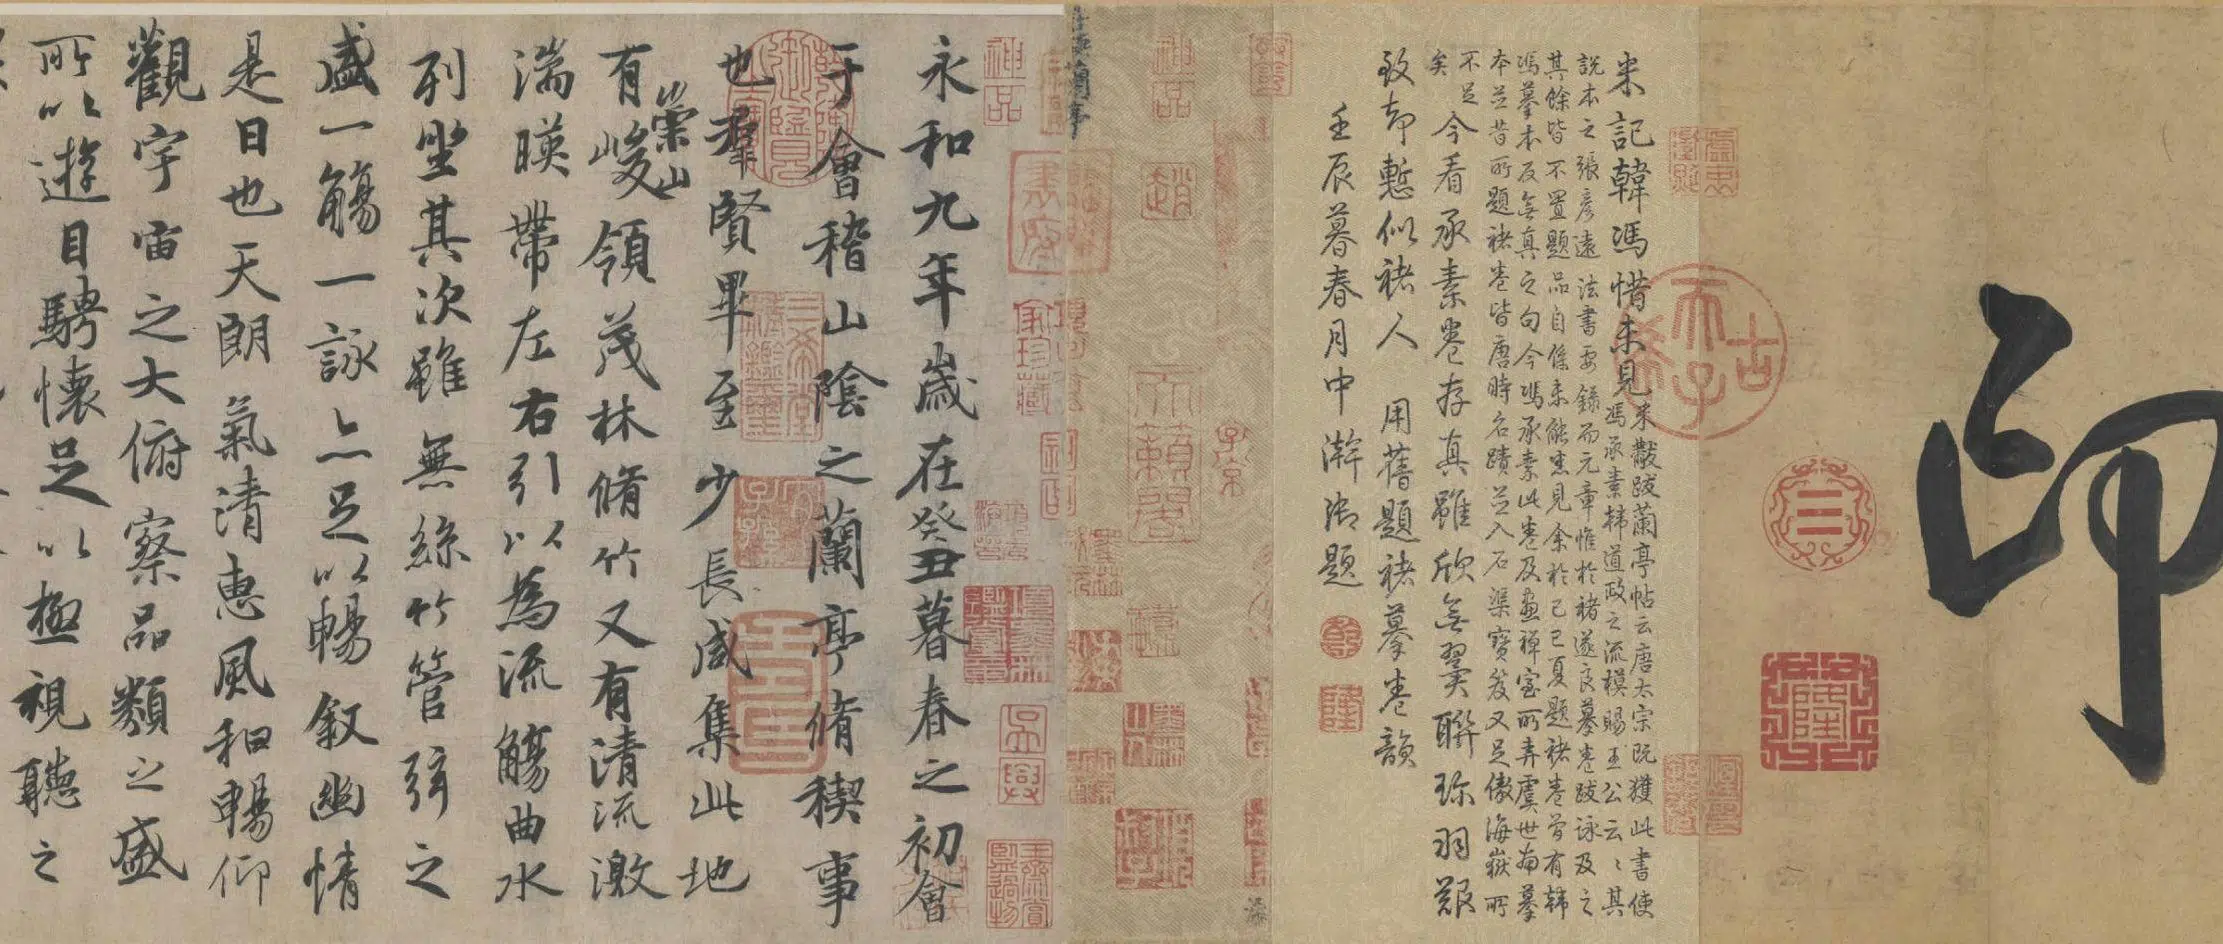 印
古希天子
乾
隆
米記韓馮惜未見
米黻跋蘭亭帖云唐太宗既獲此書使
馮承素韓道政之流模賜王公云云其
說本之張彥遠法書要錄而元章惟於褚遂良摹卷跋詠及之
其餘皆不置題品自係未能悉見余於己巳夏題褚卷曾有韓
馮摹本反無真之句今馮承素此卷及畫禪室所弆虞世南摹
本並昔所題褚卷皆唐時名蹟並入石渠寶笈又足傲海嶽所
不足
矣
今看承素卷存真雖欣無翼聯珎羽艱
致却慙似褚人 用舊題褚摹卷韻
壬辰暮春月中澣御題
神品
永和九年歲在癸丑暮春之初會
于會稽山陰之蘭亭脩稧事
也羣賢畢至少長咸集此地
有崇山峻領茂林脩竹又有清流激
湍暎帶左右引以為流觴曲水
列坐其次雖無絲竹管弦之
盛一觴一詠亦足以暢敘幽情
是日也天朗氣清惠風和暢仰
觀宇宙之大俯察品類之盛
所以遊目騁懷足以極視聽之